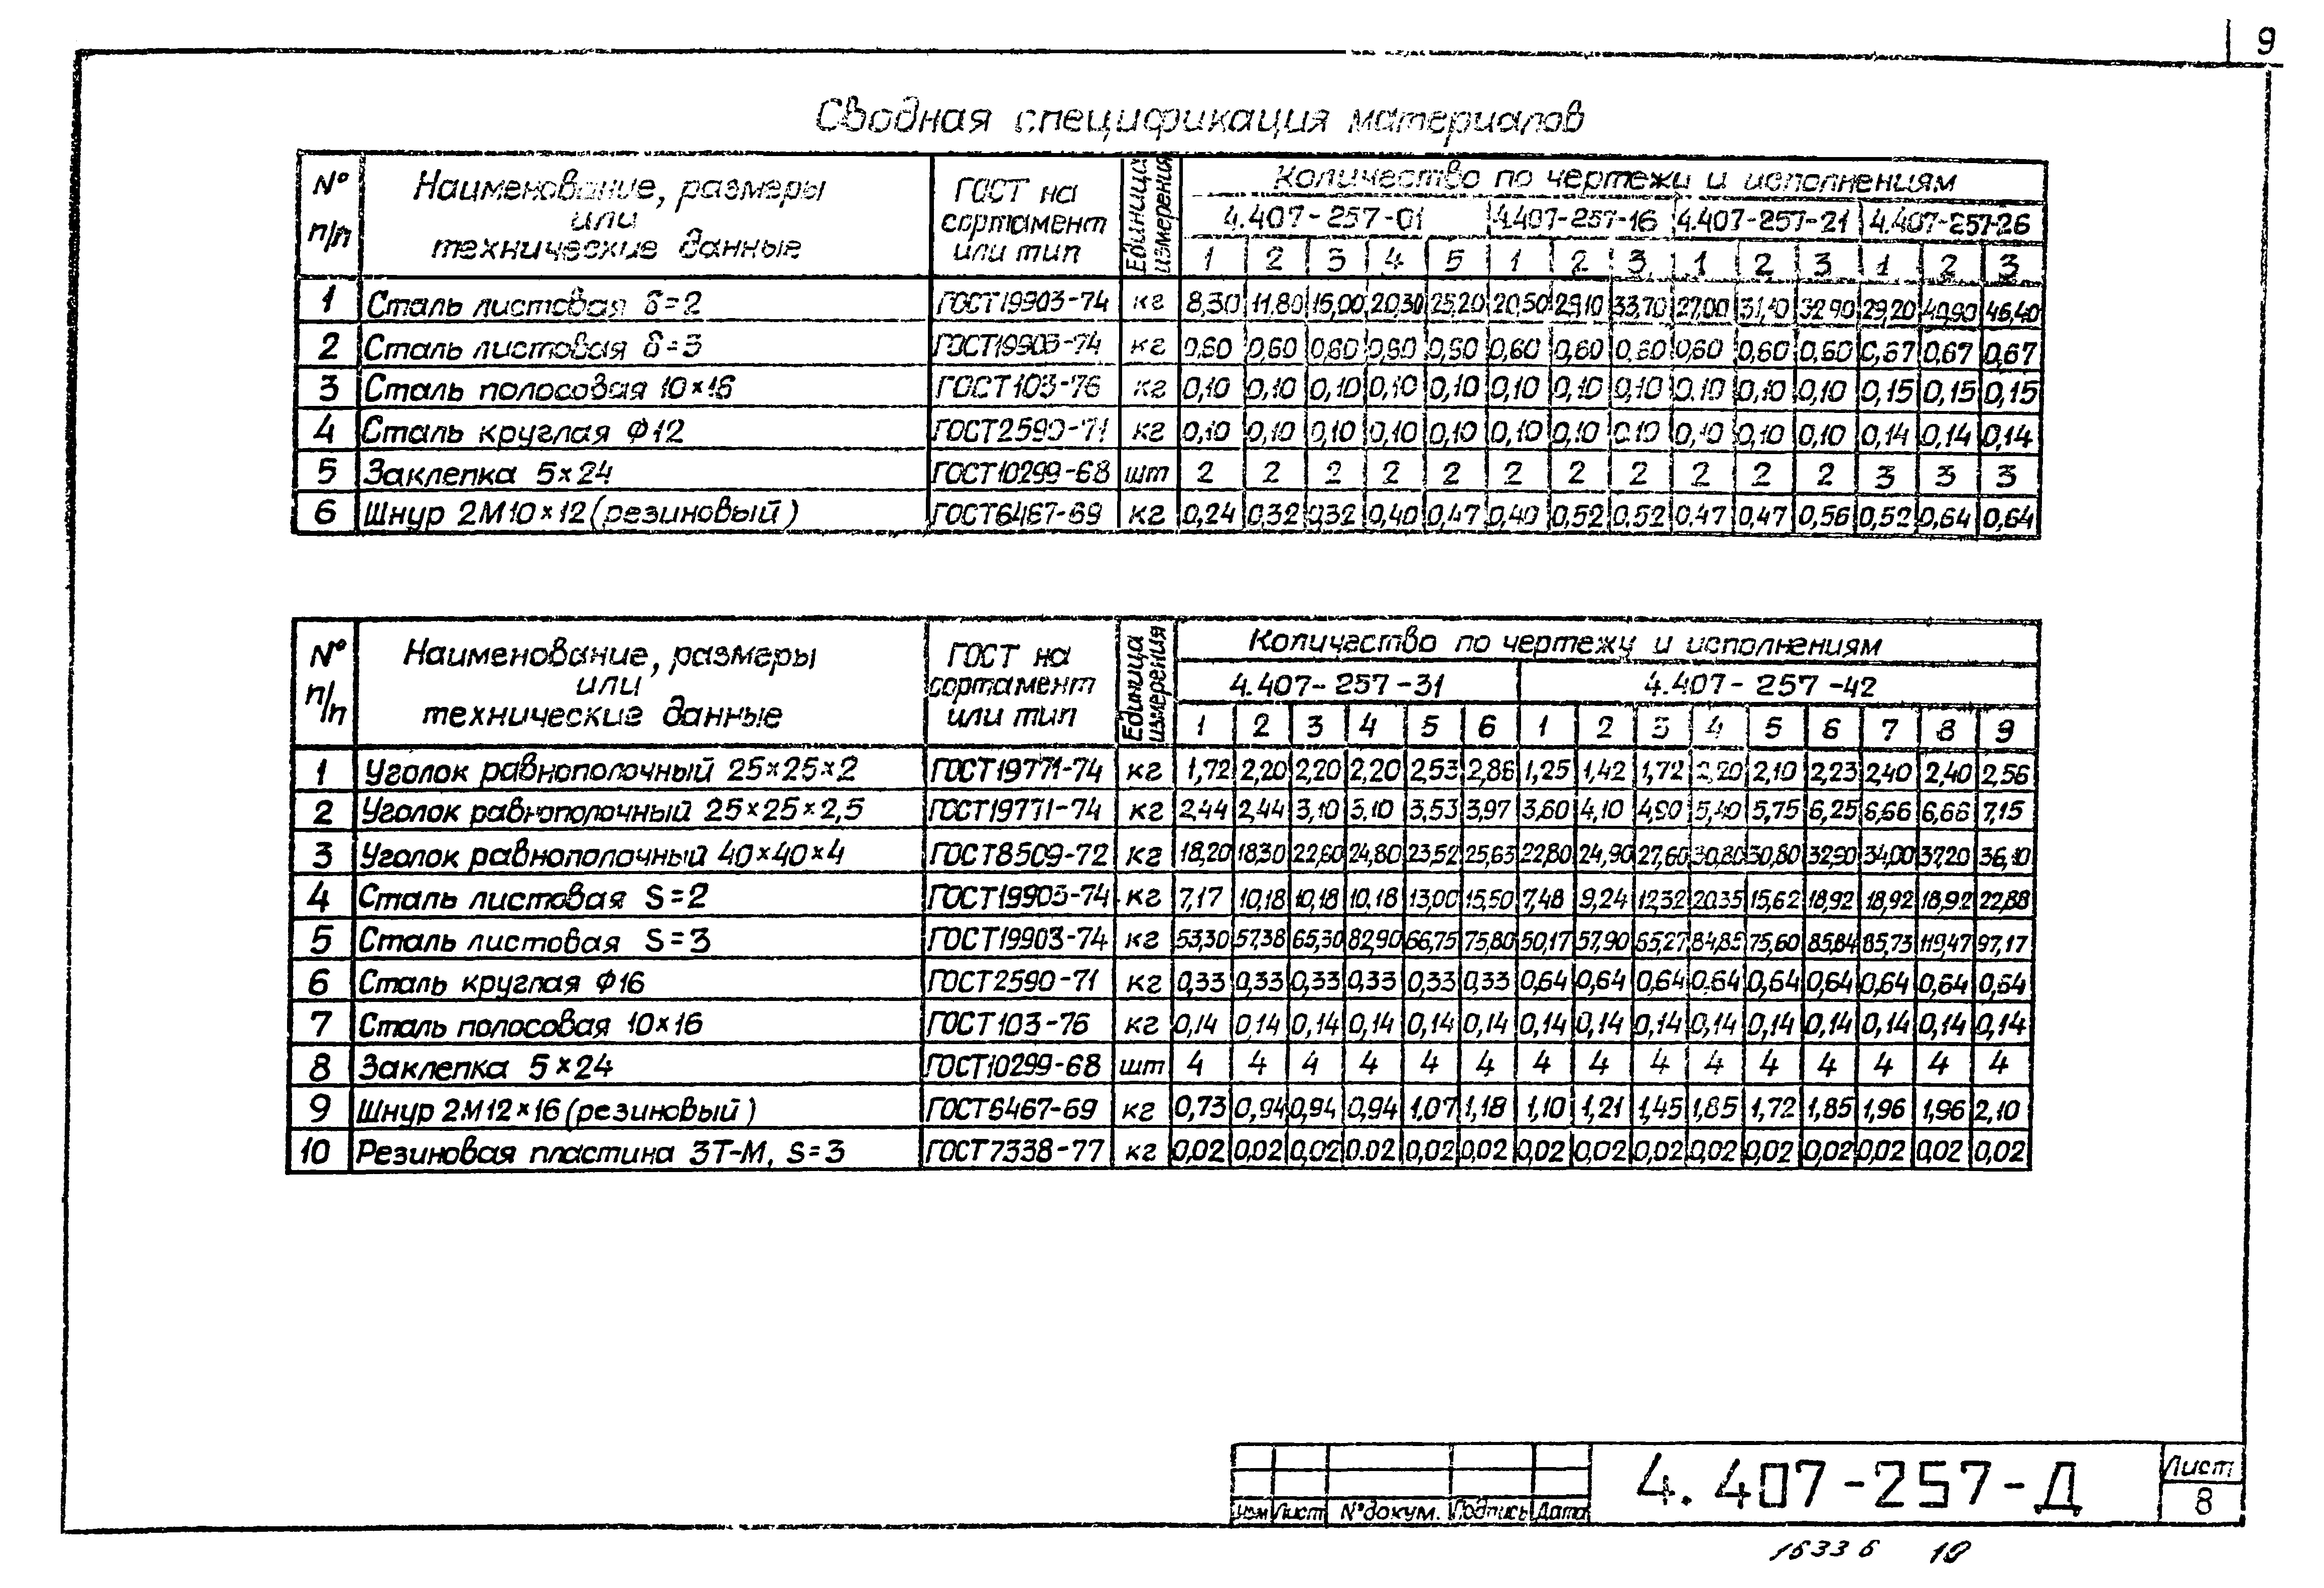 9
Сводная спецификация материалов
№ п/п | Наименование, размеры или технические данные | ГОСТ на сортамент или тип | Единица измерения | Количество по чертежи и исполнениям
4.407-257-01 | 4.407-257-16 | 4.407-257-21 | 4.407-257-26
1 2 3 4 5 1 2 3 1 2 3 1 2 3
1 Сталь листовая δ=2 ГОСТ19903-74 кг 8,30 11.80 15,00 20,30 25,20 20,50 29,10 33,70 27,00 31,40 32,90 29,20 40,90 46,40
2 Сталь листовая δ=3 ГОСТ19903-74 кг 0,60 0,60 0,60 0,60 0,60 0,60 0,60 0,60 0,60 0,60 0,60 0,67 0,67 0,67
3 Сталь полосовая 10×16 ГОСТ103-76 кг 0,10 0,10 0,10 0,10 0,10 0,10 0,10 0,10 0,10 0,10 0,10 0,15 0,15 0,15
4 Сталь круглая Ф12 ГОСТ2590-71 кг 0,10 0,10 0,10 0,10 0,10 0,10 0,10 0,10 0,10 0,10 0,10 0,14 0,14 0,14
5 Заклепка 5×24 ГОСТ10299-68 шт 2 2 2 2 2 2 2 2 2 2 2 3 3 3
6 Шнур 2М10×12(резиновый) ГОСТ6467-69 кг 0,24 0,32 0,32 0,40 0,47 0,40 0,52 0,52 0,47 0,47 0,56 0,52 0,64 0,64
№ п/п | Наименование, размеры или технические данные | ГОСТ на сортамент или тип | Единица измерения | Количество по чертежу и исполнениям
4.407-257-31 | 4.407-257-42
1 2 3 4 5 6 1 2 3 4 5 6 7 8 9
1 Уголок равнополочный 25×25×2 ГОСТ19771-74 кг 1,72 2,20 2,20 2,20 2,53 2,86 1,25 1,42 1,72 2,20 2,10 2,23 2,40 2,40 2,56
2 Уголок равнополочный 25×25×2,5 ГОСТ19771-74 кг 2,44 2,44 3,10 3,10 3,53 3,97 3,60 4,10 4,90 5,40 5,75 6,25 6,66 6,66 7,15
3 Уголок равнополочный 40×40×4 ГОСТ8509-72 кг 18,20 18,30 22,60 24,80 23,52 25,63 22,80 24,90 27,60 30,80 30,80 32,90 34,00 37,20 36,10
4 Сталь листовая S=2 ГОСТ19903-74 кг 7,17 10,18 10,18 10,18 13,00 15,50 7,48 9,24 12,32 20,35 15,62 18,92 18,92 18,92 22,88
5 Сталь листовая S=3 ГОСТ19903-74 кг 53,30 57,38 65,30 82,90 66,75 75,80 50,17 57,90 65,27 84,85 75,60 85,84 85,73 119,47 97,17
6 Сталь круглая Ф16 ГОСТ2590-71 кг 0,33 0,33 0,33 0,33 0,33 0,33 0,64 0,64 0,64 0,64 0,64 0,64 0,64 0,64 0,64
7 Сталь полосовая 10×16 ГОСТ103-76 кг 0,14 0,14 0,14 0,14 0,14 0,14 0,14 0,14 0,14 0,14 0,14 0,14 0,14 0,14 0,14
8 Заклепка 5×24 ГОСТ10299-68 шт 4 4 4 4 4 4 4 4 4 4 4 4 4 4 4
9 Шнур 2М12×16(резиновый) ГОСТ6467-69 кг 0,73 0,94 0,94 0,94 1,07 1,18 1,10 1,21 1,45 1,85 1,72 1,85 1,96 1,96 2,10
10 Резиновая пластина 3Т-М, S=3 ГОСТ7338-77 кг 0,02 0,02 0,02 0,02 0,02 0,02 0,02 0,02 0,02 0,02 0,02 0,02 0,02 0,02 0,02
Изм Лист №докум. Подпись Дата
4.407-257-Д
Лист
8
16336 10